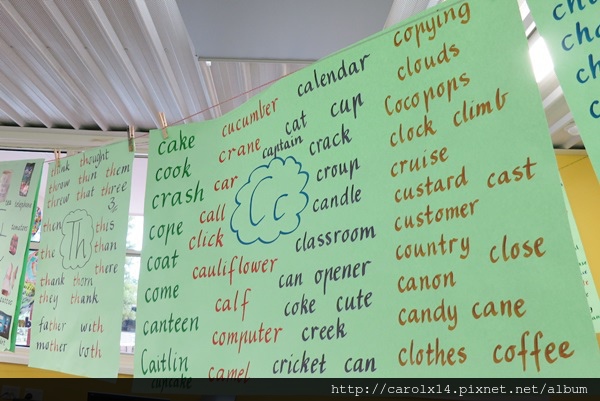 think thought
throw thin them
threw that three
3
then this
Th
the than
there
thank thorn
they thank
father with
mother both
cake
cook
crash
cope
coat
come
canteen
Caitlin
cupcake
cucumber
crane
captain
car
call
click
cauliflower
calf
computer
camel
Cc
calendar
cat cup
crack
croup
candle
classroom
can opener
coke cute
creek
cricket can
copying
clouds
Cocopops
clock climb
cruise
custard cast
customer
country close
canon
candy cane
clothes coffee
http://carolx14.pixnet.net/album